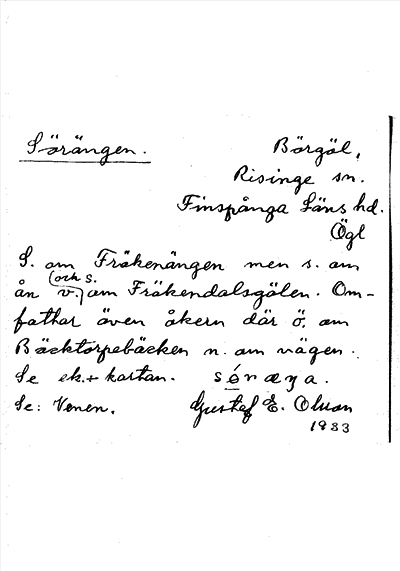 Sörängen. Börgöl,
Risinge sn.
Finspånga Läns hd.
Ögl
S. om Fräkenängen men s. om
ån (och s. v.) om Fräkendalsgölen. Om-
fattar även åkern där ö. om
Bäcktorpebäcken n. om vägen.
Se ek.+ kartan. sǿræŋa.
Se: Venen. Gustaf E. Olson
1933